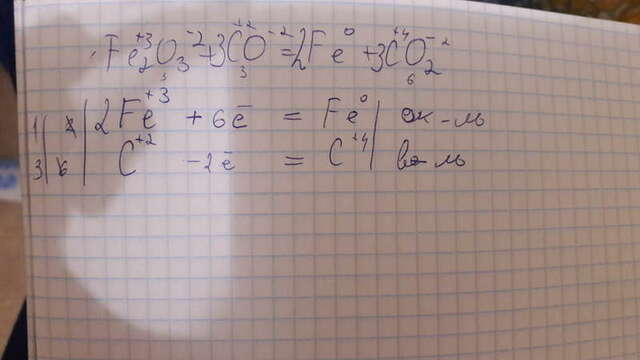 Fe₂⁺³O₃⁻² + 3C⁺²O⁻² = 2Fe⁰ + 3C⁺⁴O₂⁻²
3 3 6
1 | 2 | 2Fe⁺³ + 6e̅ = Fe⁰ | ок-ль
3 | 6 | C⁺² - 2e̅ = C⁺⁴ | во-ль